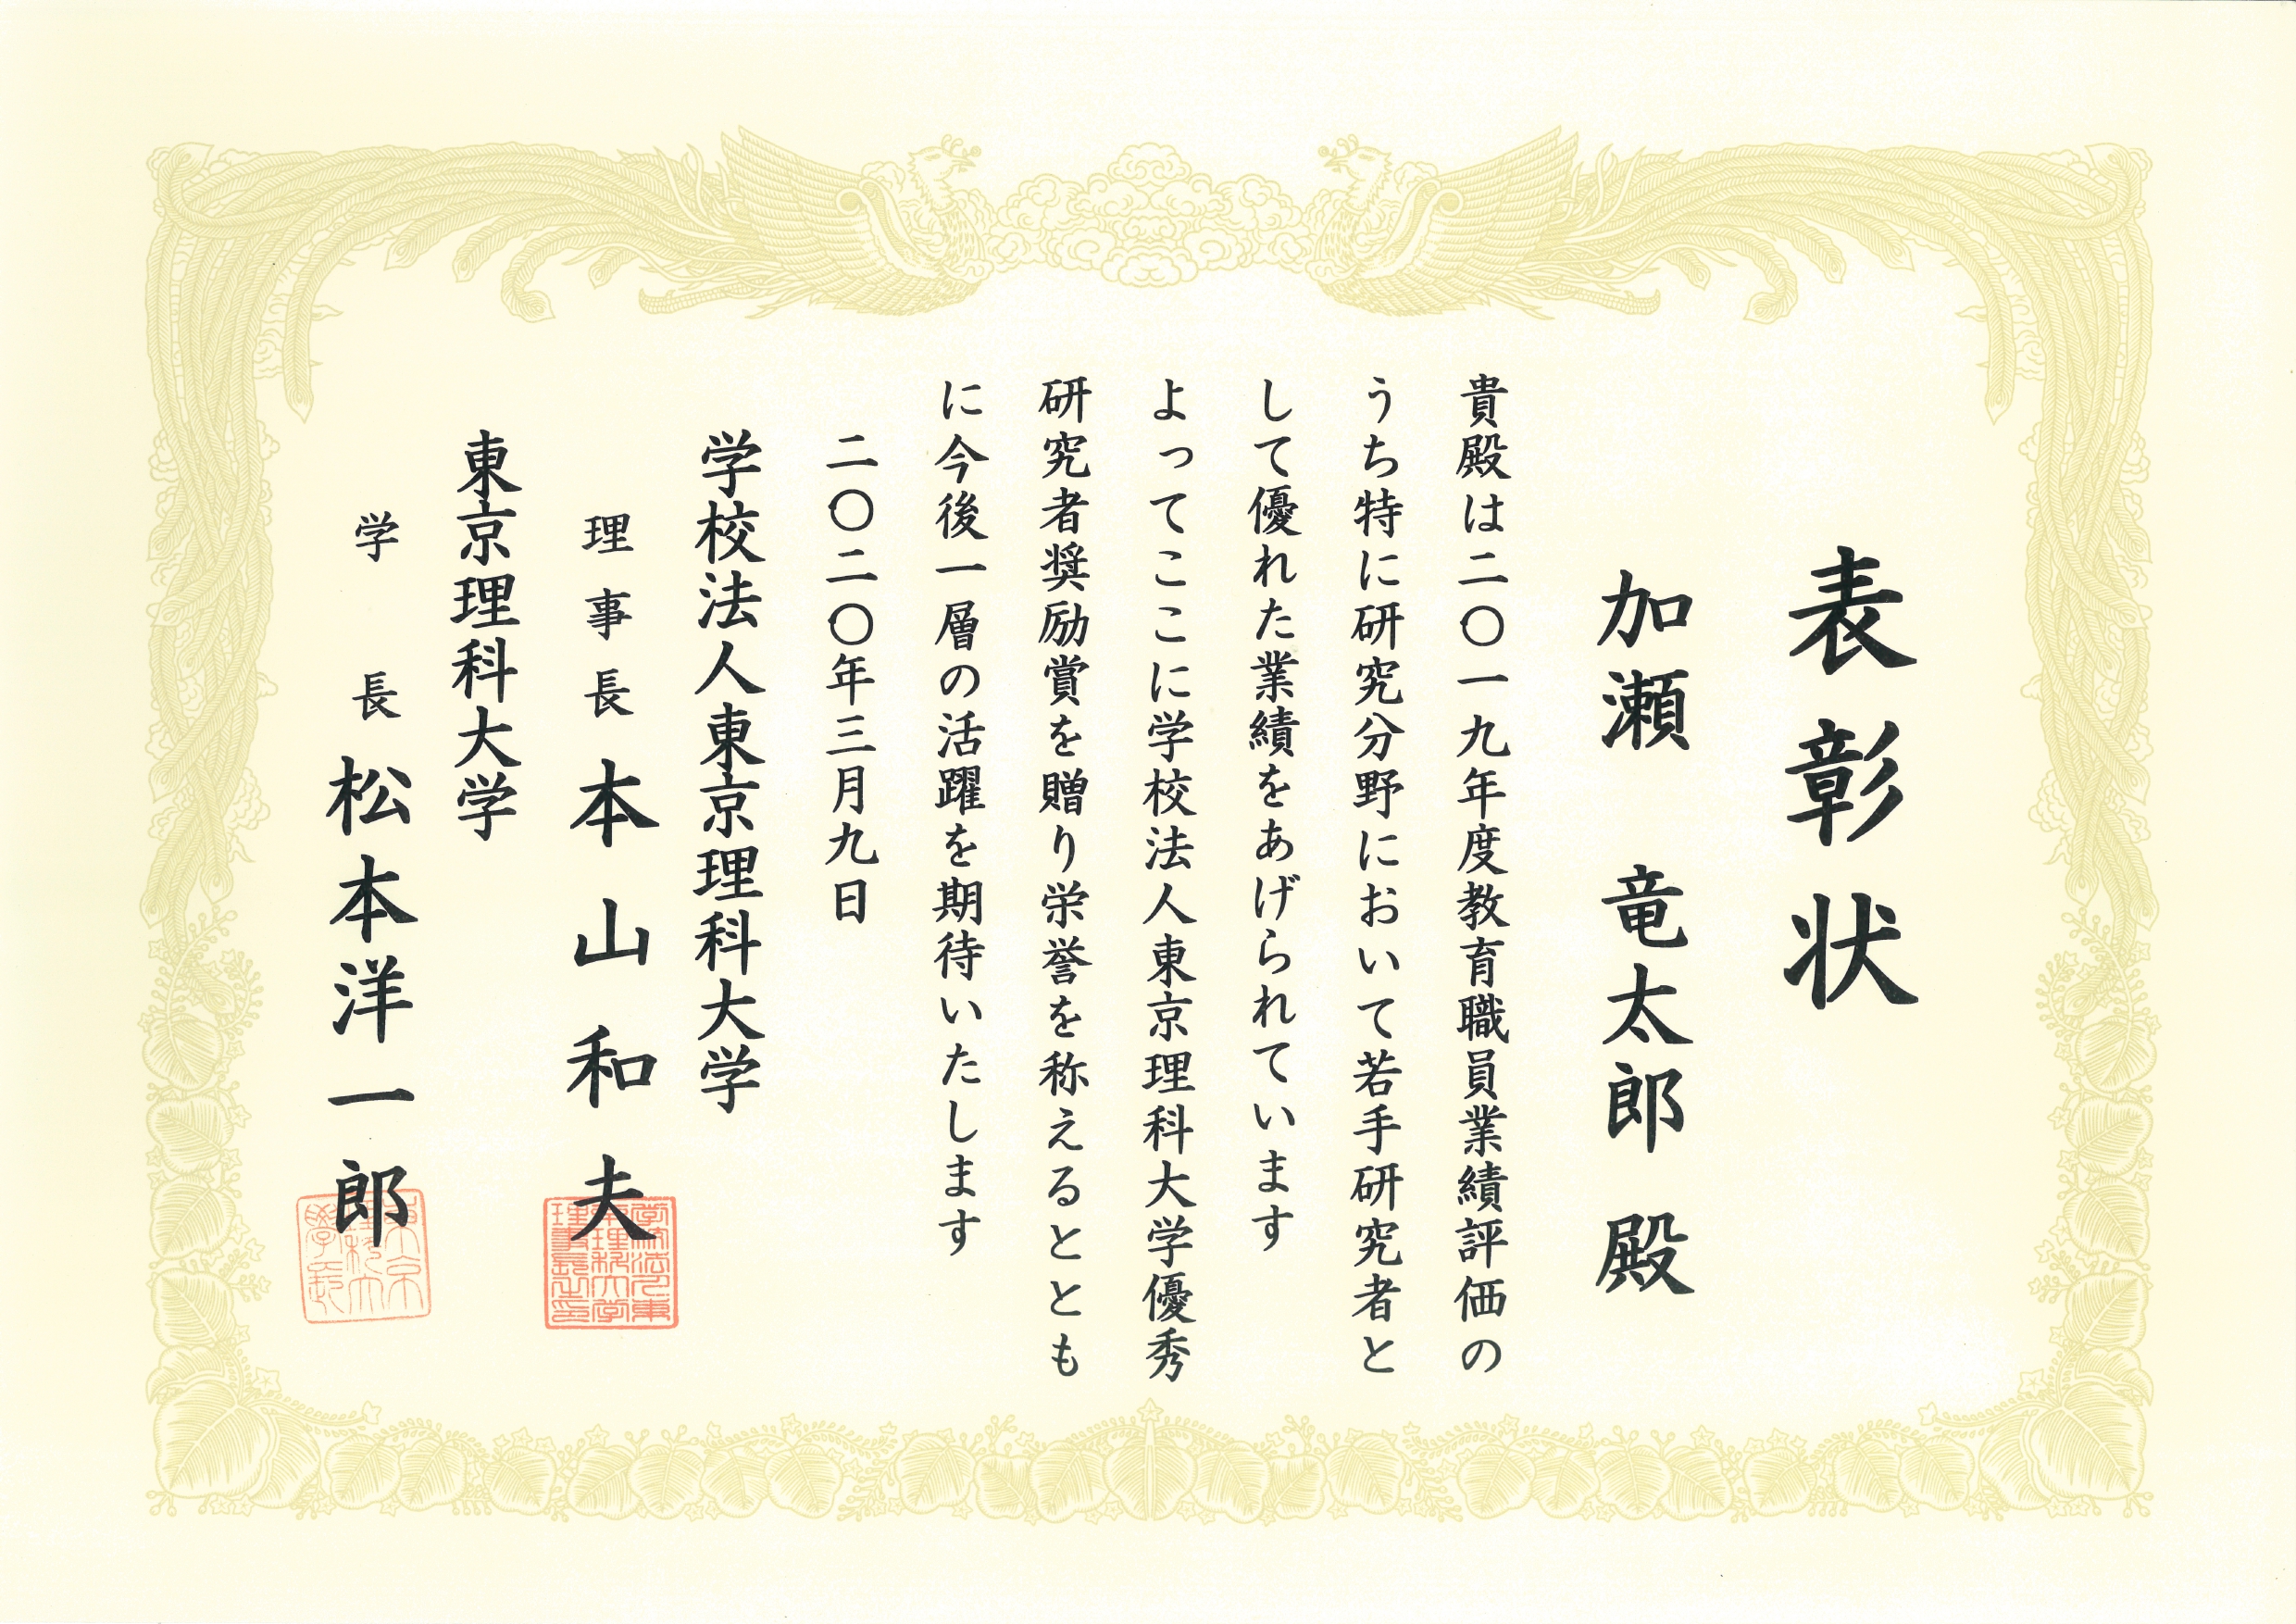 表彰状
加瀬 竜太郎 殿
貴殿は二〇一九年度教育職員業績評価の
うち特に研究分野において若手研究者と
して優れた業績をあげられています
よってここに学校法人東京理科大学優秀
研究者奨励賞を贈り栄誉を称えるととも
に今後一層の活躍を期待いたします
二〇二〇年三月九日
学校法人東京理科大学
理事長 本山和夫
東京理科大学
学長 松本洋一郎